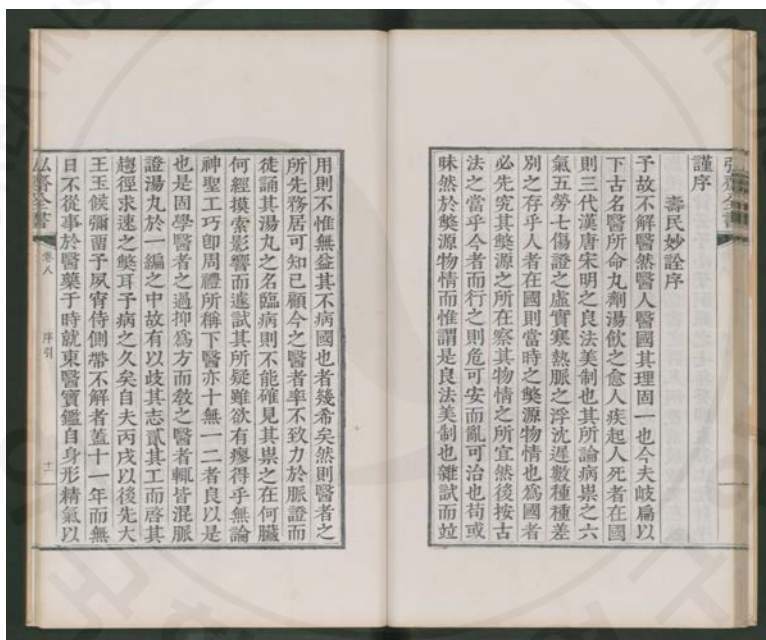 弘齋全書
謹序
壽民妙詮序
予故不解醫然醫人醫國其理固一也今夫岐扁以
下古名醫所命丸劑湯飲之愈人疾起人死者在國
則三代漢唐宋明之良法美制也其所論病祟之六
氣五勞七傷證之虛實寒熱脈之浮沈遲數種種差
別之存乎人者在國則當時之獘源物情也爲國者
必先究其獘源之所在察其物情之所宜然後按古
法之當乎今者而行之則危可安而亂可治也苟或
昧然於獘源物情而惟謂是良法美制也雜試而竝
用則不惟無益其不病國也者幾希矣然則醫者之
所先務居可知已顧今之醫者率不致力於脈證而
徒誦其湯丸之名臨病則不能確見其祟之在何臟
何經摸索影響而遽試其所疑雖欲有瘳得乎無論
神聖工巧卽周禮所稱下醫亦十無一二者良以是
也是固學醫者之過抑爲方而敎之醫者輒皆混脈
證湯丸於一編之中故有以歧其志貳其工而啓其
趨徑求速之獘耳予病之久矣自夫丙戌以後先大
王玉候彌畱予夙宵侍側帶不解者蓋十一年而無
日不從事於醫藥于時就東醫寶鑑自身形精氣以
弘齋全書 卷八 序引